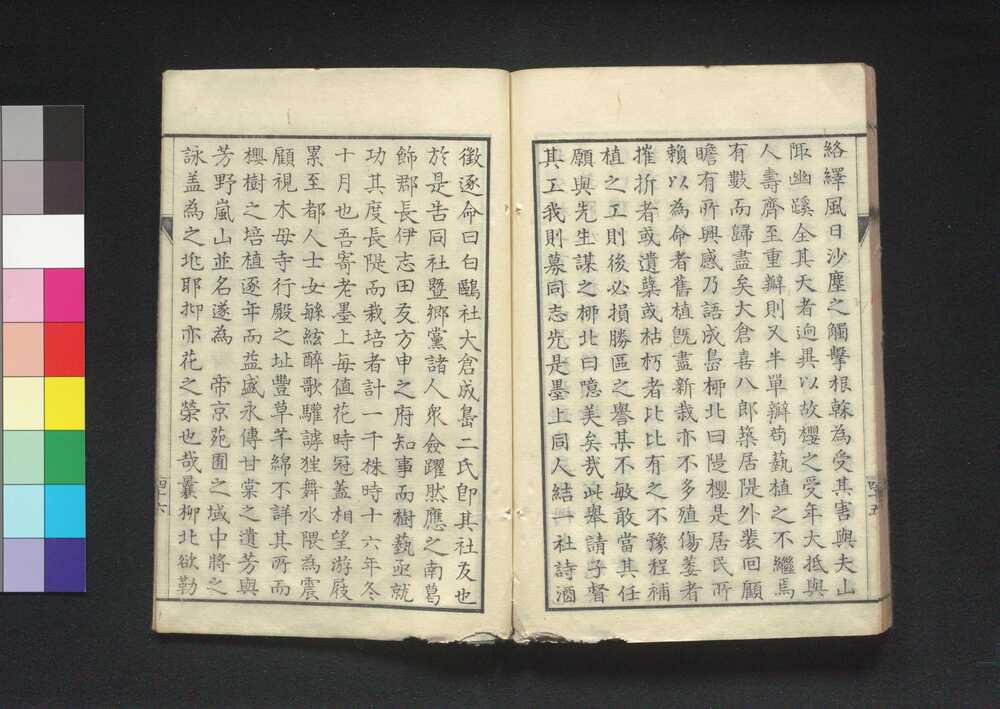 絡繹風日沙塵之觸擊根榦為受其害與夫山
陬幽蹊全其天者逈異以故櫻之受年大抵與
人壽齊至重瓣則又半單瓣苟藝植之不繼焉
有數而歸盡矣大倉喜八郎築居隄外裴回顧
瞻有所興感乃語成島桺北曰隄櫻是居民所
賴以為命者舊植旣盡新栽亦不多殖傷萎者
摧折者或遺蘖或枯朽者比比有之不豫程補
植之工則後必損勝區之譽某不敏敢當其任
願與先生謀之桺北曰噫美矣哉此舉請子督
其工我則募同志先是墨上同人結一社詩酒
徵逐命曰白鷗社大倉成島二氏卽其社友也
於是告同社暨鄉黨諸人眾僉躍然應之南葛
飾郡長伊志田友方申之府知事而樹藝亟就
功其度長隄而栽培者計一千株時十六年冬
十月也吾寄老墨上每值花時冠蓋相望游屐
累至都人士女緐絃醉歌驩謔狌舞水隈為震
顧視木母寺行殿之址豐草芊綿不詳其所而
櫻樹之培植逐年而益盛永傳甘棠之遺芳與
芳野嵐山並名遂為 帝京苑囿之域中將之
詠盖為之兆耶抑亦花之榮也哉曩柳北欲勒
四十五
四十六